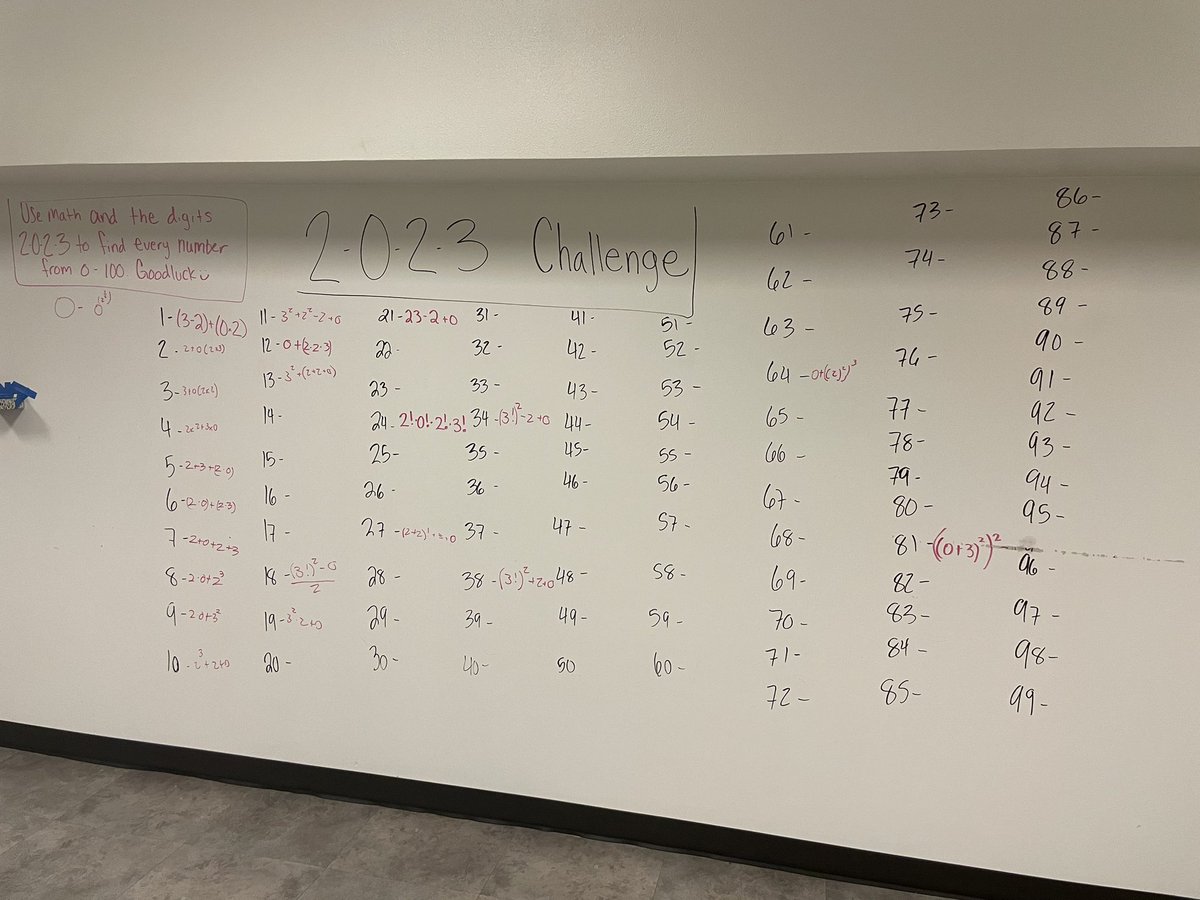 Use math and the digits
2·0·2·3 to find every number
from 0-100. Goodluck
2·0·2·3 Challenge
0-
1-(3-2)+(0·2)
2-2+0(2×3)
3-3+0(2×2)
4-2×2+3×0
5-2+3+(2·0)
6-(2·0)+(2·3)
7-2+0+2+3
8-2·0+2³
9-2·0+3²
10-2³+2+0
11-3²+2²-2+0
12-0+(2·2·3)
13-3²+(2+2+0)
14-
15-
16-
17-
18-(3!)²-0
2
19-3²·2+0
20-
21-23-2+0
22-
23-
24-2!·0!·2!·3!
25-
26-
27-
28-
29-
30-
31-
32-
33-
34-(3!)²-2+0
35-
36-
37-
38-(3!)²+2+0
39-
40-
41-
42-
43-
44-
45-
46-
47-
48-
49-
50
51-
52-
53-
54-
55-
56-
57-
58-
59-
60-
61-
62-
63-
64-0+((2)²)³
65-
66-
67-
68-
69-
70-
71-
72-
73-
74-
75-
76-
77-
78-
79-
80-
81-((0+3)²)²
82-
83-
84-
85-
86-
87-
88-
89-
90-
91-
92-
93-
94-
95-
96-
97-
98-
99-